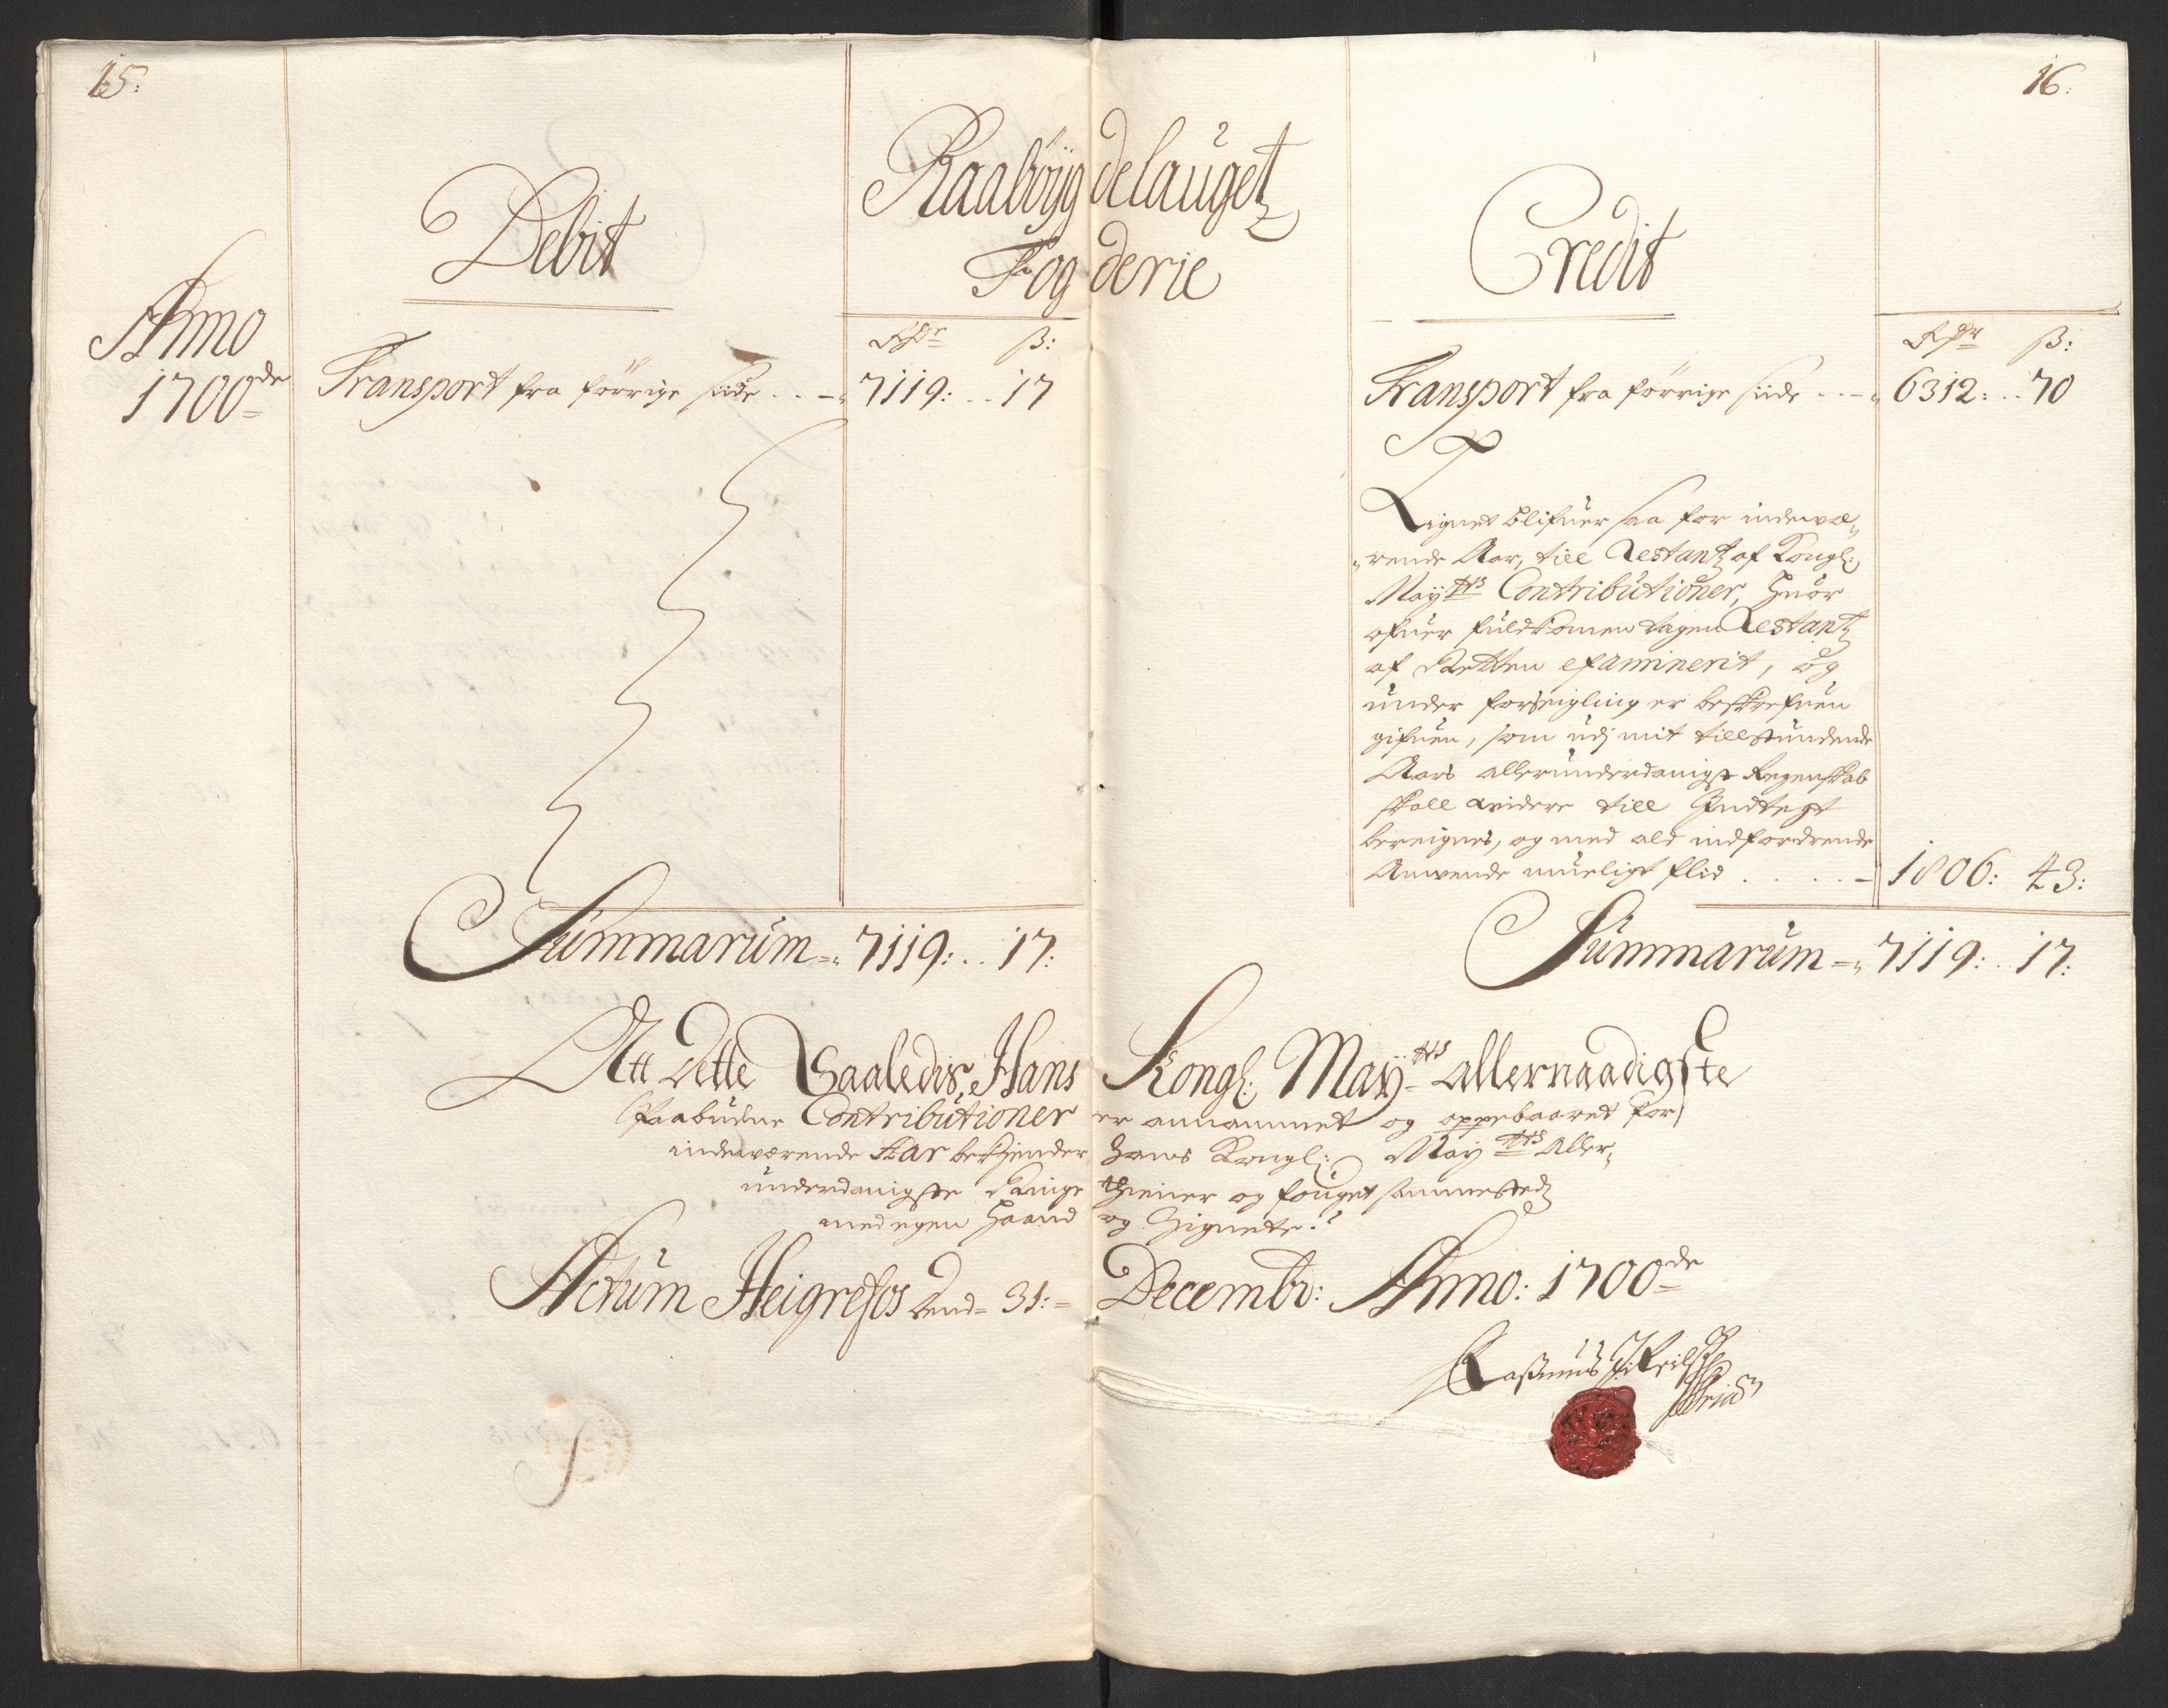 15:
16:
Raabøygdelauget
Fogderie
Debit
Credit
Anno
1700de
Rdr ß:
Transport fra forrige side . . 7119: . . 17
Rdr ß:
Transport fra forrige side . . 6312: . . 70
Lignet blifuer saa for indevæ-
rende Aar, till Restantz af Kongl:
Mayts Contributioner, huor
ofuer fuldkomen tagen Restantz
af Retten examinerit, og
under forseigling er beskrefuen
gifuen, som udj mit tillstundende
Aars allerunderdanigst Regenskab
skall videre till Indtegt
bereignes, og med ald indfordrende
Anvende mueligt flid . . . . 1806: 43:
Summarum 7119: . . 17:
Summarum 7119: . . 17:
Att dette Saaledis, Hans Kongl: Mayts allernaadigste
Paabudne Contributioner er annammet og oppebaaret for
indeværende Aar bekiender hans Kongl: Mayts Aller-
underdanigste Ringe thiener og fouget sammesteds
med egen haand og Signete.
Actum Heigrefos dend 31: Decembr: Anno: 1700de
Rasmus